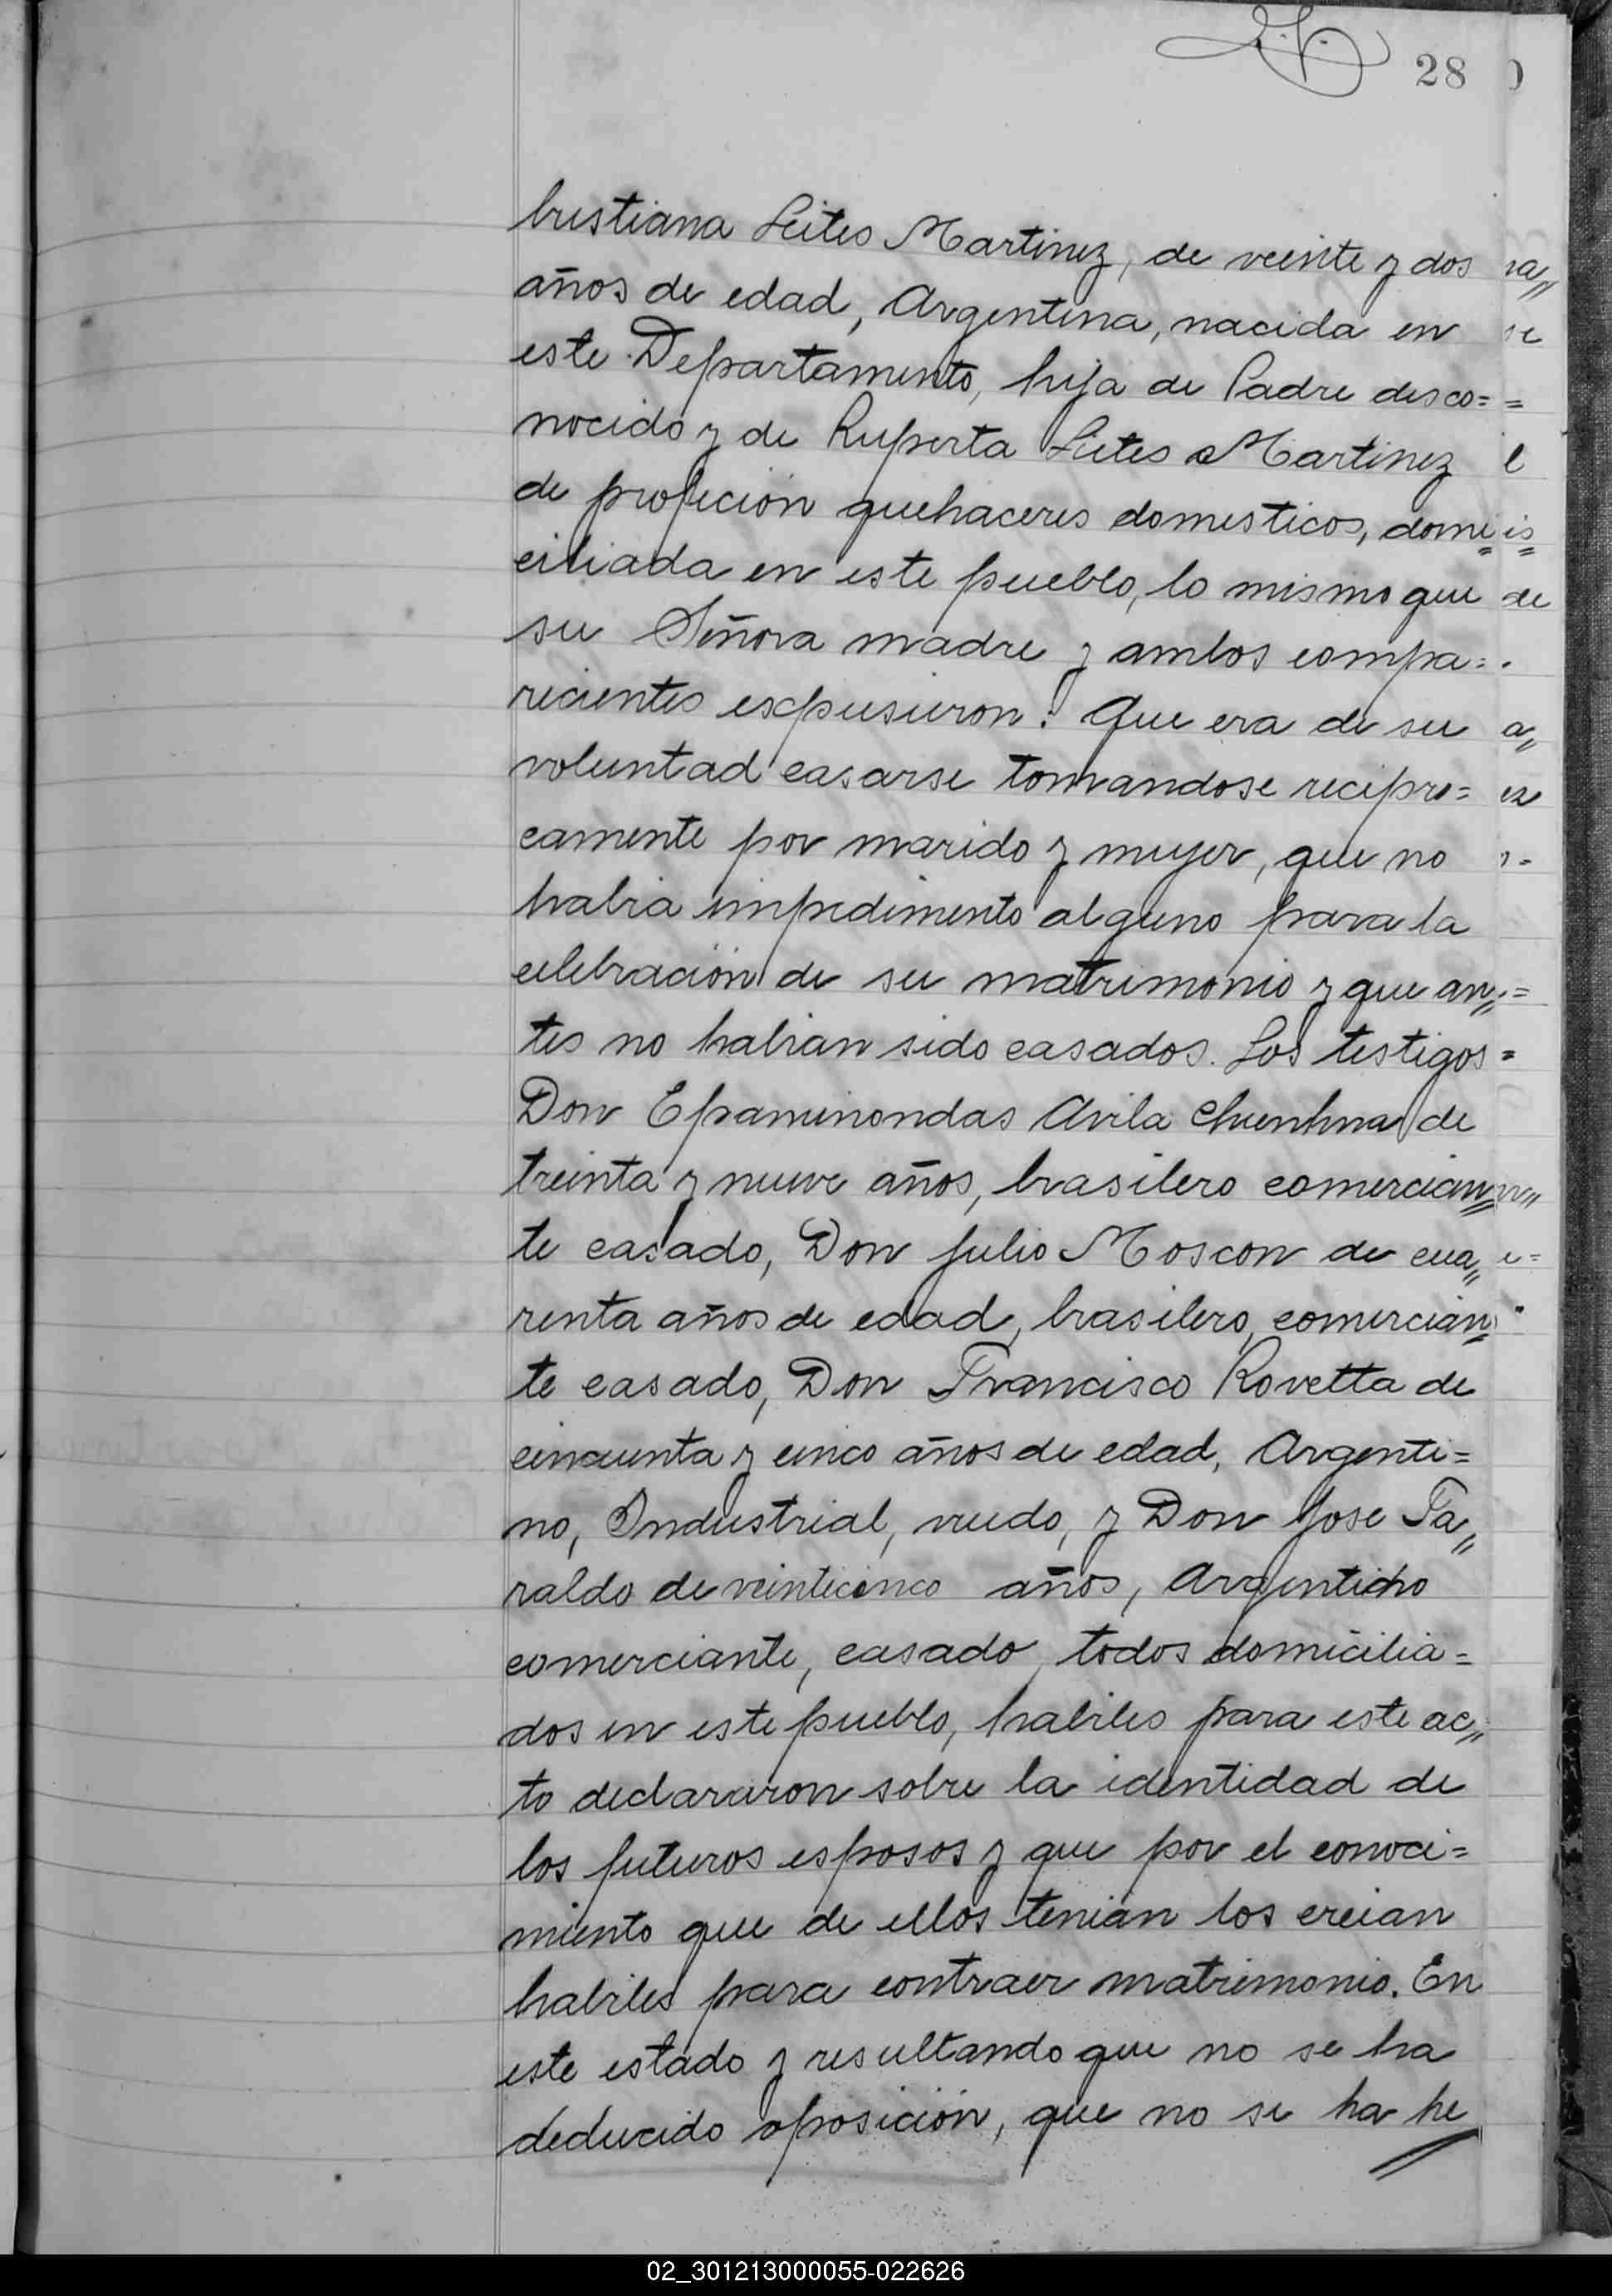 28
Cristiana Leites Martinez, de veinte y dos
años de edad, Argentina, nacida en
este Departamento, hija de Padre desco=
nocido y de Ruperta Leites Martinez
de profecion quehaceres domesticos, domi=
ciliada en este pueblo, lo mismo que
su Señora madre y ambos compa=
recientes expusieron: Que era de su
voluntad casarse tomandose recipro=
camente por marido y mujer, que no
habia impedimento alguno para la
celebración de su matrimonio y que an=
tes no habian sido casados. Los testigos
Don Epaminondas Avila de
treinta y nueve años, brasilero comercian=
te casado, Don Julio Moscon de cua=
renta años de edad, brasilero, comercian=
te casado, Don Francisco Rovetta de
cincuenta y cinco años de edad, Argenti=
no, Industrial, viudo, y Don Jose Ta=
raldo de veinticinco años, Argentino
comerciante, casado, todos domicilia=
dos en este pueblo, habiles para este ac=
to declararon sobre la identidad de
los futuros esposos y que por el conoci=
miento que de ellos tenian los creian
habiles para contraer matrimonio. En
este estado y resultando que no se ha
deducido oposición, que no se ha he
02_301213000055-022626